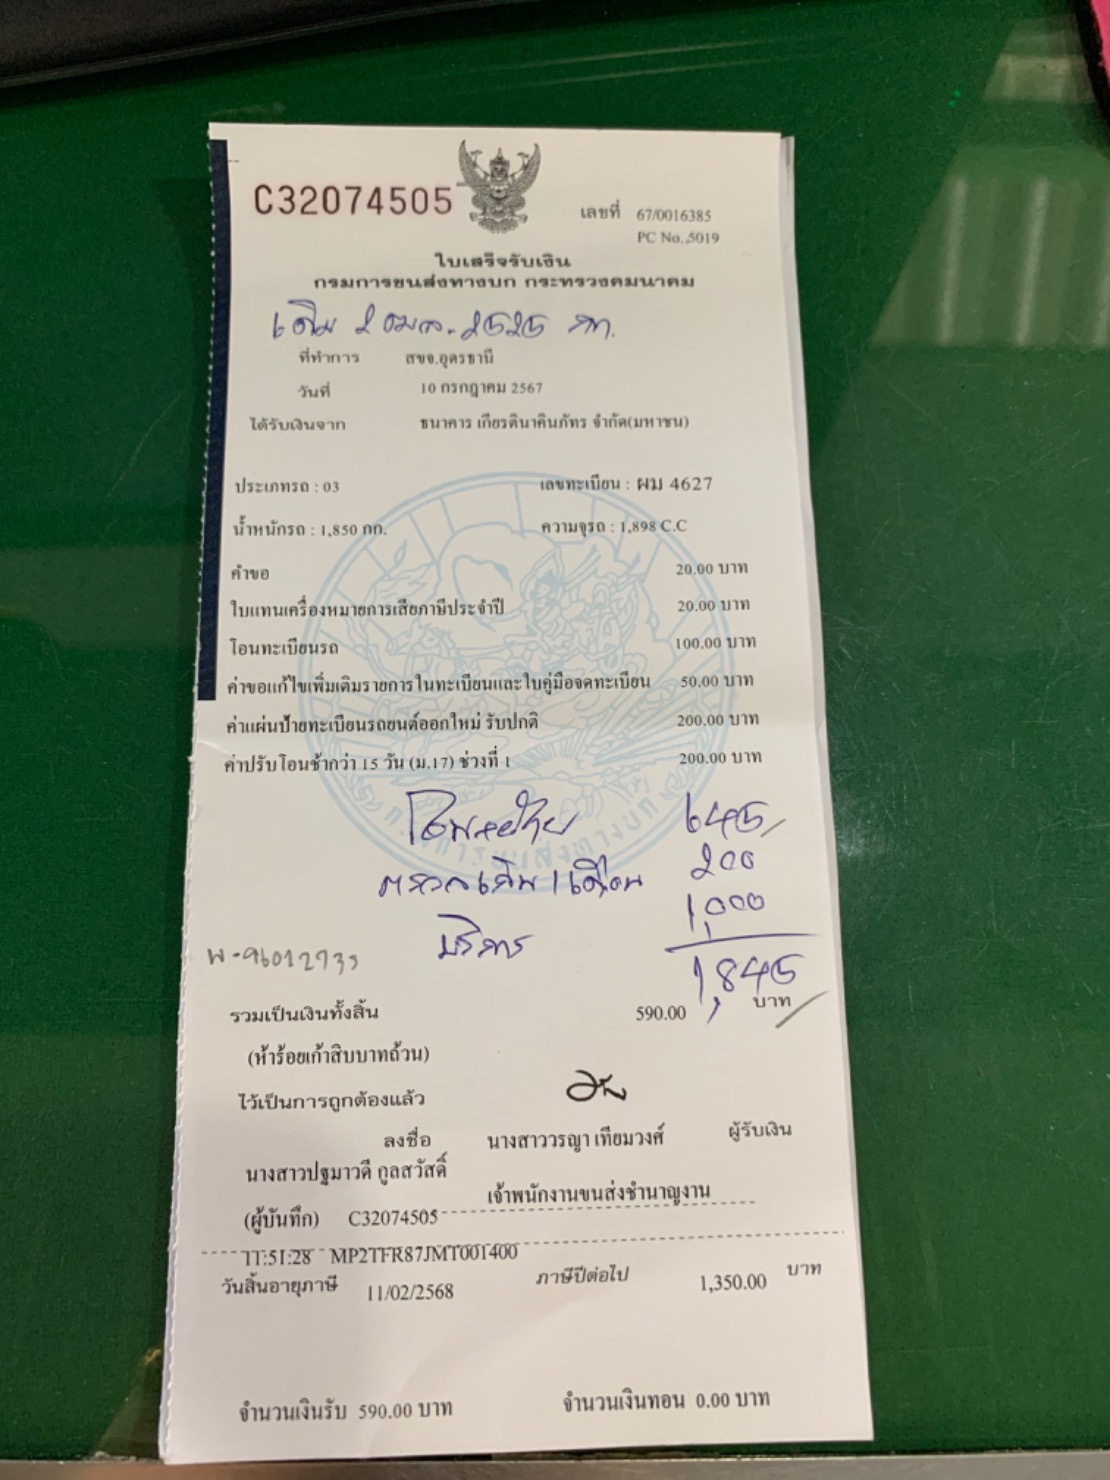 C32074505
เลขที่ 67/0016385
PC No.,5019
ใบเสร็จรับเงิน
กรมการขนส่งทางบก กระทรวงคมนาคม
เดิม 2 ฒก-2525 กท.
ที่ทำการ สขจ.อุดรธานี
วันที่ 10 กรกฎาคม 2567
ได้รับเงินจาก ธนาคาร เกียรตินาคินภัทร จำกัด(มหาชน)
ประเภทรถ : 03 เลขทะเบียน : ผม 4627
น้ำหนักรถ : 1,850 กก. ความจุรถ : 1,898 C.C
คำขอ 20.00 บาท
ใบแทนเครื่องหมายการเสียภาษีประจำปี 20.00 บาท
โอนทะเบียนรถ 100.00 บาท
ค่าขอแก้ไขเพิ่มเติมรายการในทะเบียนและใบคู่มือจดทะเบียน 50.00 บาท
ค่าแผ่นป้ายทะเบียนรถยนต์ออกใหม่ รับปกติ 200.00 บาท
ค่าปรับโอนช้ากว่า 15 วัน (ม.17) ช่วงที่ 1 200.00 บาท
645
200
1,000
บริการ
1,845
รวมเป็นเงินทั้งสิ้น 590.00 บาท
(ห้าร้อยเก้าสิบบาทถ้วน)
ไว้เป็นการถูกต้องแล้ว
ลงชื่อ นางสาววรญา เทียมวงศ์ ผู้รับเงิน
นางสาวปฐมาวดี กูลสวัสดิ์ เจ้าพนักงานขนส่งชำนาญงาน
(ผู้บันทึก) C32074505
11:51:28 MP2TFR87JMT001400
วันสิ้นอายุภาษี 11/02/2568 ภาษีปีต่อไป 1,350.00 บาท
จำนวนเงินรับ 590.00 บาท จำนวนเงินทอน 0.00 บาท